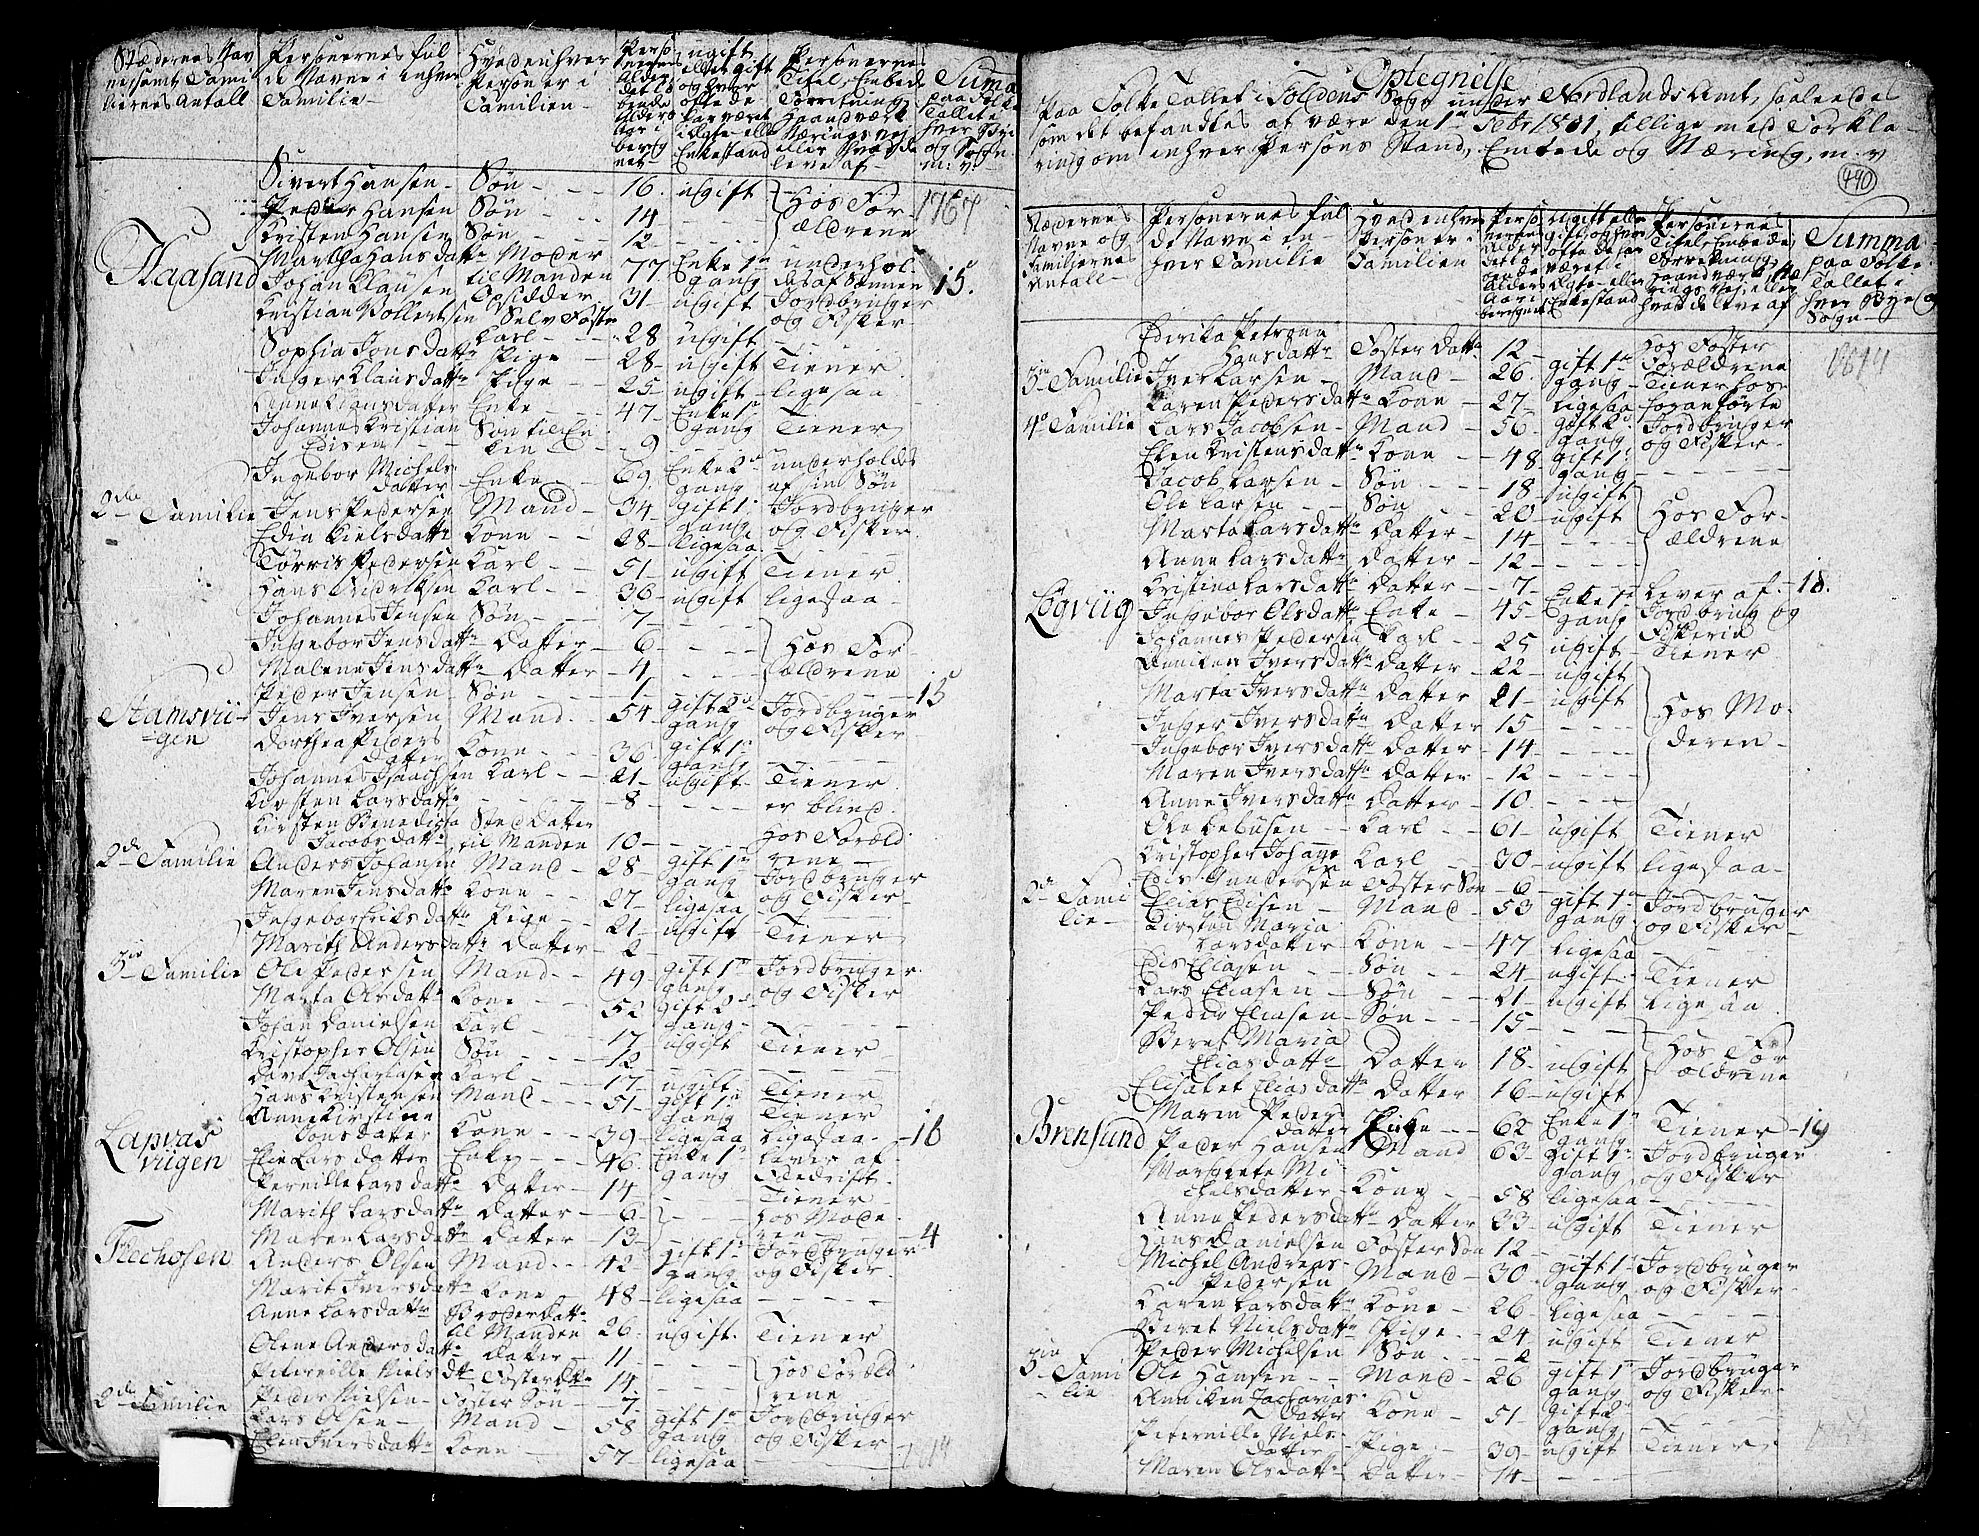 Stædernes Nav
nes samt Fami
liernes Antall
Personernes ful
de Navne i enhver
Familie
Hvad enhver
Person er i
Familien
ugift
eller gift
og hvor
ofte de
har været
i Ægte- eller
Enkestand
Personernes
Titel, Embede
Forretning
Haandværk
Næringsvej
eller hvad de
leve af
Summa
paa Folke
Tallet i
hver Bye
og Sogn
m: v:
Sivert Hansen Søn 16 ugift Hos For-
Peder Hansen Søn 14 ældrene
Kristen Hansen Søn 12
Martha Hansdatter Moder til Manden 77 Enke 1te gang underholdes af Sønnen
Haasand Johan Klausen Opsidder 31 ugift Jordbruger og Fisker 15.
Kristian Vollertsen Selv Foster Karl 28 ugift
Sophia Jonsdatter Pige 28 ugift Tiener
Inger Klausdatter Pige 25 ugift ligesaa
Anne Klausdatter Enke 47 Enke 1te gang Tiener
Johannes Kristian Edisen Søn til Enken 9
Ingebor Michelsdatter Enke 69 Enke 2den gang underholdes af sin Søn
2den Familie Jens Pedersen Mand 34 gift 1te gang Jordbruger og Fisker
Edin Nielsdatter Kone 28 ligesaa
Tørris Pedersen Karl 51 ugift Tiener
Hans Fredriksen Karl 36 ugift ligesaa
Johannes Jensen Søn 7
Ingebor Jensdatter Datter 6 Hos For-
Malene Jensdatter Datter 4 ældrene
Peder Jensen Søn 1 15
Stamsvii-
gen Jens Iversen Mand 54 gift 2den gang Jordbruger og Fisker
Dorthea Pedersdatter Kone 36 gift 1te gang
Johannes Isaachsen Karl 21 ugift Tiener
Kirsten Larsdatter 8 er blind
Kirsten Benedigta Jacobsdatter Sted Datter til Manden 10 Hos Forældrene
2den Familie Anders Johansen Mand 28 gift 1te gang Jordbruger og Fisker
Maren Jensdatter Kone 27 ligesaa
Ingebor Eriksdatter Pige 21 ugift Tiener
Marith Andersdatter Datter 2
3die Familie Ole Pedersen Mand 49 gift 1te gang Jordbruger og Fisker
Marta Olsdatter Kone 52 gift 2den gang
Johan Danielsen Karl 17 ugift Tiener
Kristopher Olsen Søn 12
Zachariasen Karl 17 ugift Tiener
Hans Kristensen Mand 51 gift 1te gang Tiener
Anne Kirstine Jonsdatter Kone 39 ligesaa ligesaa 16
Lapvas
viigen Elie Larsdatter Enke 46 Enke 1te gang lever af Fædrift
Pernille Larsdatter Datter 14 Tiener
Marith Larsdatter Datter 6 Hos Mode
Maren Larsdatter Datter 13 ren 4
Flechosen Anders Olsen Mand 42 gift 1te gang Jordbruger og Fisker
Marit Iversdatter Kone 48 ligesaa
Anne Larsdatter Broderdatter til Manden 26 ugift Tiener
Olene Andersdatter Datter 11
Peternille Nielsdatter Foster Datter 14 Hos Foræld
Peder Nielsen Foster Søn 7 rene
2den Familie Lars Olsen Mand 58 gift 1te gang Jordbruger og Fisker
Elen Iversdatter Kone 57 ligesaa
Optegnelse
Paa Folke Tallet i Foldens Sogn under Nordlands Amt, saaledes
som det befandtes at være den 1te Febr 1801, tillige med Forkla-
ring om enhver Persons Stand, Embede og Næring, m: v
490
Stædernes
Navne og
Familiernes
Antall
Personernes ful
de Navne i en
hver Familie
Hvad enhver
Person er i
Familien
Summa
paa Folke
Tallet i
hver Bye og
Sogn
Edrika Petrona Hansdatter Foster Datter 12 Hos Foster Forældrene
3die Familie Iver Larsen Mand 26 gift 1te gang Tiener hos
Karen Pedersdatter Kone 27 ligesaa foranførte
4de Familie Lars Jacobsen Mand 56 gift 2den gang Jordbruger og Fisker
Elen Kristensdatter Kone 48 gift 1te gang
Jacob Larsen Søn 18 ugift
Ole Larsen Søn 20 ugift Hos For-
Marta Larsdatter Datter 14 ældrene
Anne Larsdatter Datter 12
Kristina Larsdatter Datter 7 18.
Løgviig Ingebor Olsdatter Enke 45 Enke 1te gang Lever af Jordbrug og Fiskerie
Johannes Pedersen Karl 25 ugift Tiener
Anniken Iversdatter Datter 22 ugift
Marta Iversdatter Datter 21 ugift
Inger Iversdatter Datter 15 Hos Mo-
Ingebor Iversdatter Datter 14 deren
Maren Iversdatter Datter 12
Anne Iversdatter Datter 10
Ole Lebesen Karl 61 ugift Tiener
Kristopher Johannesen Karl 30 ugift ligesaa
Edis Andersen Foster Søn 6
2den Fami
lie Elias Edisen Mand 53 gift 1te gang Jordbruger og Fisker
Kirsten Maria Larsdatter Kone 47 ligesaa
Edis Eliasen Søn 24 ugift Tiener
Lars Eliasen Søn 21 ugift Ligesaa
Peder Eliasen Søn 15
Beret Maria Eliasdatter Datter 18 ugift Hos For
Elisabet Eliasdatter Datter 16 ugift ældrene
Maren Pedersdatter Enke 62 Enke 1te gang Tiener 19
Brensund Peder Hansen Mand 63 gift 1te gang Jordbruger og Fisker
Margrete Michelsdatter Kone 58 ligesaa
Anna Pedersdatter Datter 33 ugift Tiener
Hans Danielsen Foster Søn 12
Michel Andreas Pedersen Mand 30 gift 1te gang Jordbruger og Fisker
Karen Larsdatter Kone 26 ligesaa
Beret Nielsdatter Pige 24 ugift Tiener
Peder Michelsen Søn 2
3die Fami
lie Ole Hansen Mand 26 gift 1te gang Jordbruger og Fisker
Anniken Zacharias datter Kone 51 gift 2den gang
Peternille Nielsdatter Pige 39 ugift Tiener
Maren Olsdatter Datter 14